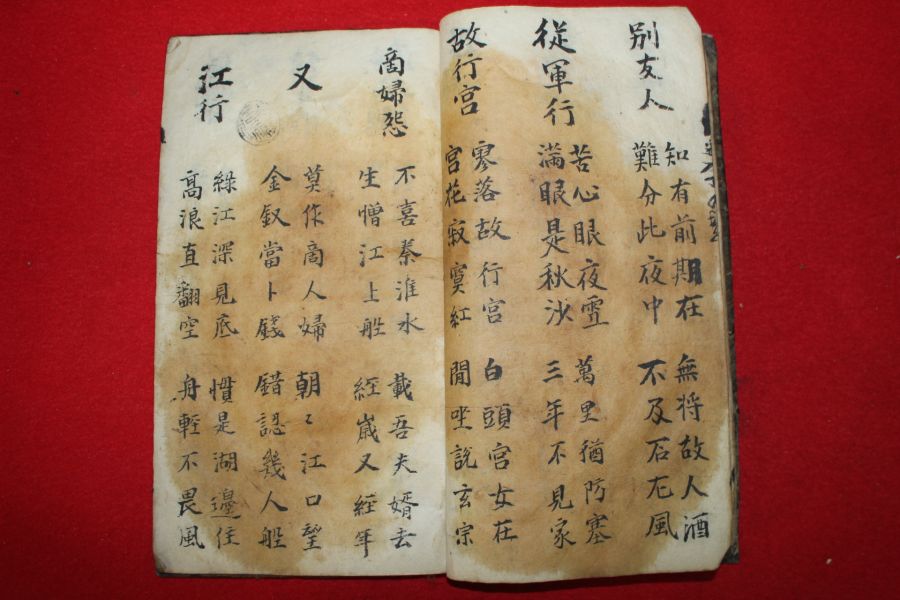 别友人
知有前期在 無将故人酒
難分此夜中 不及石尤風
從軍行
苦心眼夜雪 萬里猶防塞
滿眼是秋沙 三年不見家
故行宮
寥落故行宮 白頭宮女在
宮花寂寞紅 閒坐說玄宗
商婦怨
不喜秦淮水 載吾夫婿去
生憎江上船 經歲又經年
又
莫作商人婦 朝〻江口望
金釵當卜錢 錯認幾人船
江行
綠江深見底 慣是湖邊住
高浪直翻空 舟輕不畏風